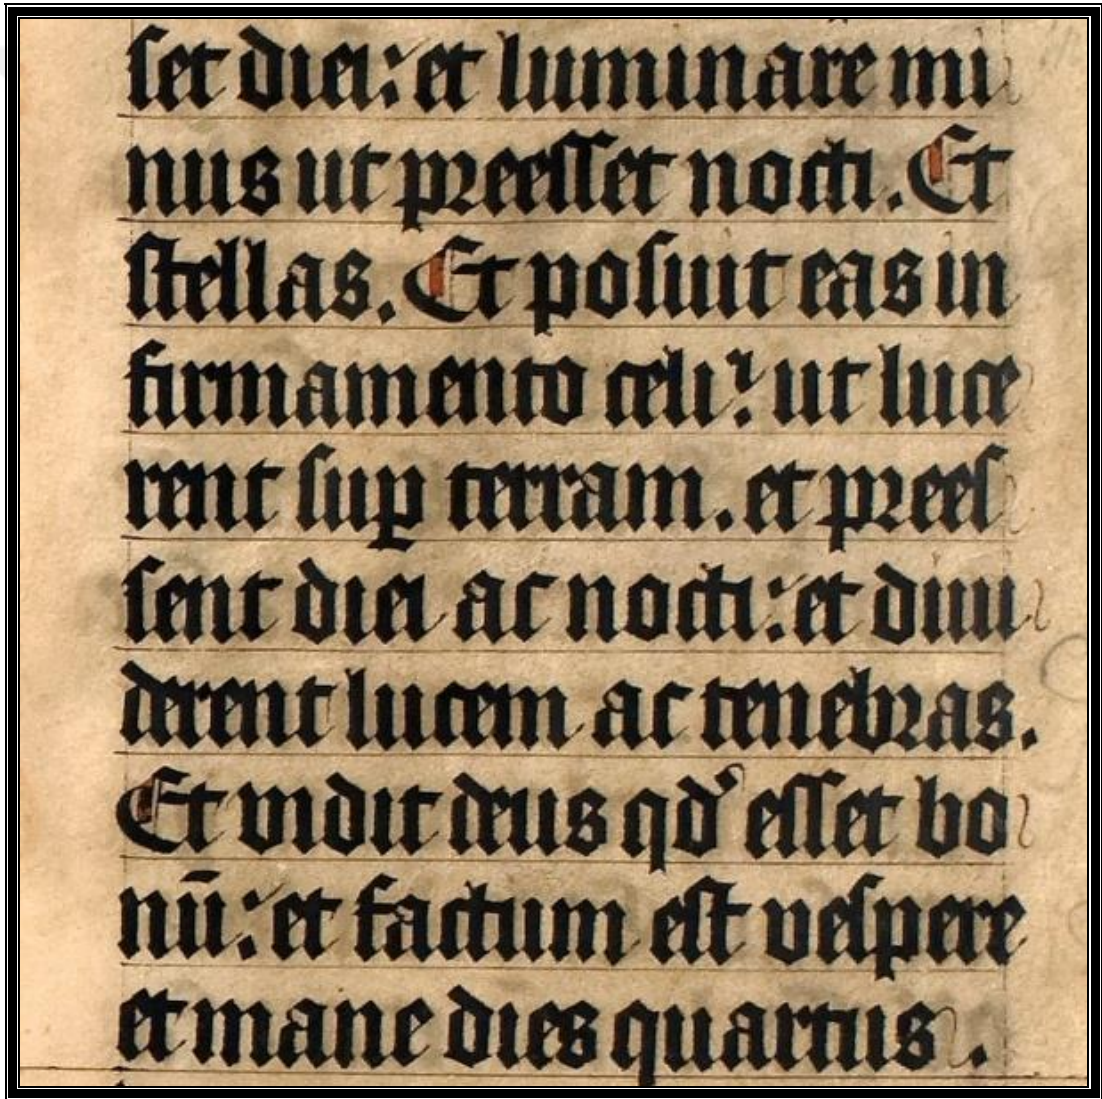 ſet diei: et luminare mi
nus ut preeſſet nocti. Et
ſtellas. Et poſuit eas in
firmamento celi: ut luce
rent ſuꝑ terram. et preeſ
ſent diei ac nocti: et diui
derent lucem ac tenebras.
Et vidit deus qd' eſſet bo
nū: et factum eſt veſpere
et mane dies quartus.